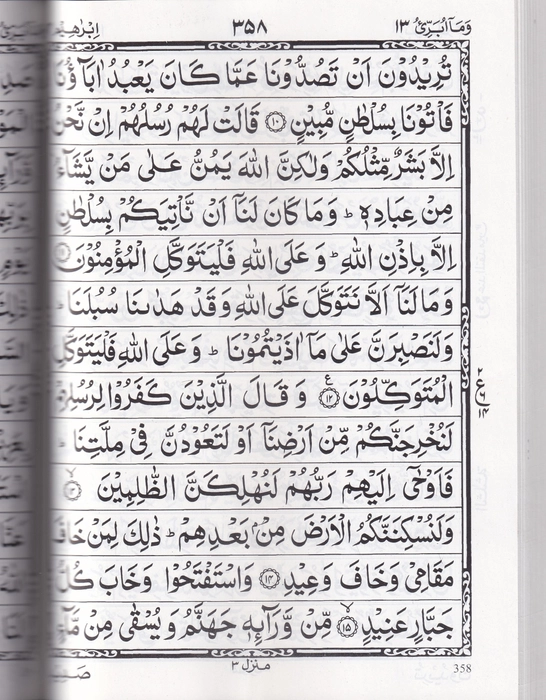 وَمَاۤ اُبَرِّئُ ١٣ ٣٥٨ اِبْرٰهِيْم
تُرِيْدُوْنَ اَنْ تَصُدُّوْنَا عَمَّا كَانَ يَعْبُدُ اٰبَآؤُنَا
فَاْتُوْنَا بِسُلْطٰنٍ مُّبِيْنٍ ﴿١٠﴾ قَالَتْ لَهُمْ رُسُلُهُمْ اِنْ نَّحْنُ
اِلَّا بَشَرٌ مِّثْلُكُمْ وَلٰكِنَّ اللّٰهَ يَمُنُّ عَلٰى مَنْ يَّشَآءُ
مِنْ عِبَادِهٖ ؕ وَمَا كَانَ لَنَاۤ اَنْ نَّاْتِيَكُمْ بِسُلْطٰنٍ
اِلَّا بِاِذْنِ اللّٰهِ ؕ وَ عَلَى اللّٰهِ فَلْيَتَوَكَّلِ الْمُؤْمِنُوْنَ ﴿١١﴾
وَ مَا لَنَاۤ اَلَّا نَتَوَكَّلَ عَلَى اللّٰهِ وَ قَدْ هَدٰىنَا سُبُلَنَا ؕ
وَلَنَصْبِرَنَّ عَلٰى مَاۤ اٰذَيْتُمُوْنَا ؕ وَ عَلَى اللّٰهِ فَلْيَتَوَكَّلِ
الْمُتَوَكِّلُوْنَ ﴿١٢﴾ ع وَ قَالَ الَّذِيْنَ كَفَرُوْا لِرُسُلِهِمْ
لَنُخْرِجَنَّكُمْ مِّنْ اَرْضِنَاۤ اَوْ لَتَعُوْدُنَّ فِيْ مِلَّتِنَا ؕ
فَاَوْحٰۤى اِلَيْهِمْ رَبُّهُمْ لَنُهْلِكَنَّ الظّٰلِمِيْنَ ﴿١٣﴾
وَلَنُسْكِنَنَّكُمُ الْاَرْضَ مِنْۢ بَعْدِهِمْ ؕ ذٰلِكَ لِمَنْ خَافَ
مَقَامِيْ وَخَافَ وَعِيْدِ ﴿١٤﴾ وَاسْتَفْتَحُوْا وَخَابَ كُلُّ
جَبَّارٍ عَنِيْدٍ ﴿١٥﴾ مِّنْ وَّرَآئِهٖ جَهَنَّمُ وَ يُسْقٰى مِنْ مَّآءٍ
منزل ٣
358